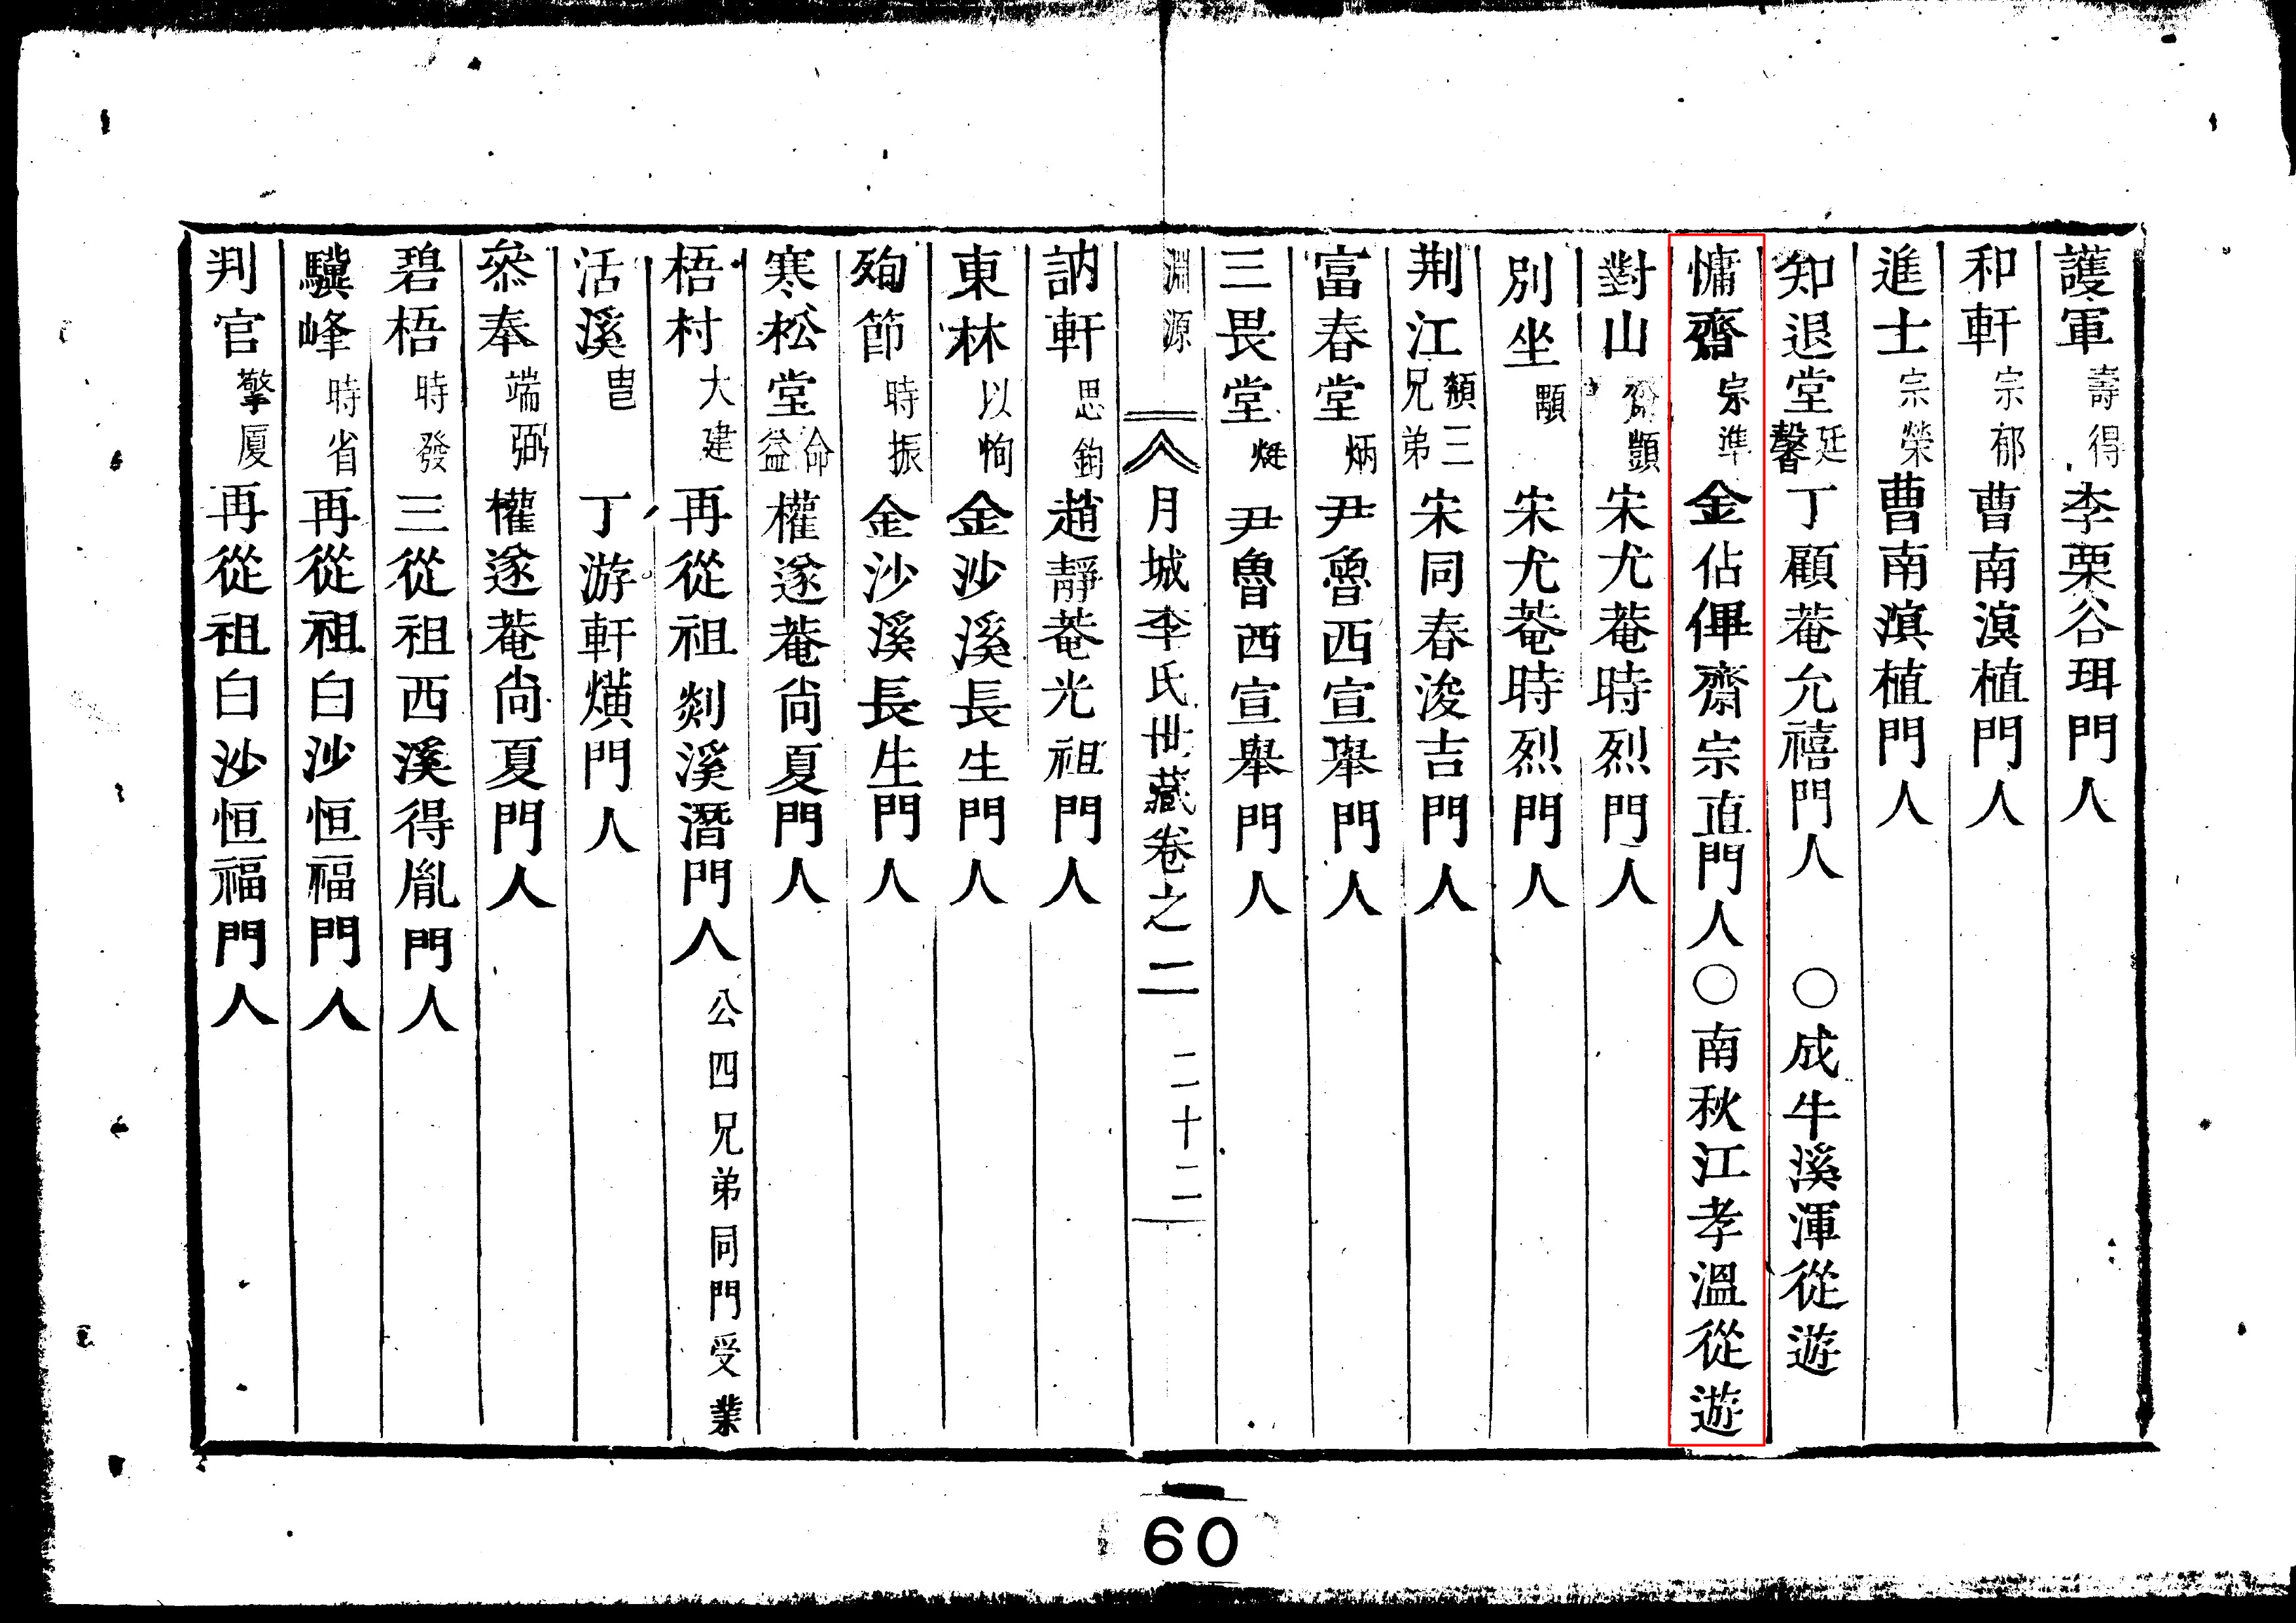 護軍壽得李栗谷珥門人
和軒宗郁曹南溟植門人
進士宗榮曹南溟植門人
知退堂廷馨丁顧菴允禧門人〇成牛溪渾從遊
慵齋宗準金佔俾齋宗直門人〇南秋江孝溫從遊
對山齋顗宋尤菴時烈門人
別坐顯宋尤菴時烈門人
荆江䫉三兄弟宋同春浚吉門人
富春堂炳尹魯西宣舉門人
三畏堂烶尹魯西宣舉門人
淵源
月城李氏世藏卷之二
二十二
訥軒思鈞趙靜菴光祖門人
東林以恂金沙溪長生門人
殉節時振金沙溪長生門人
寒松堂命益權遂菴尙夏門人
梧村大建再從祖剡溪潛門人公四兄弟同門受業
活溪丁游軒熿門人
叅奉端弼權遂菴尙夏門人
碧梧時發三從祖西溪得胤門人
驥峰時省再從祖白沙恒福門人
判官擎厦再從祖白沙恒福門人
60